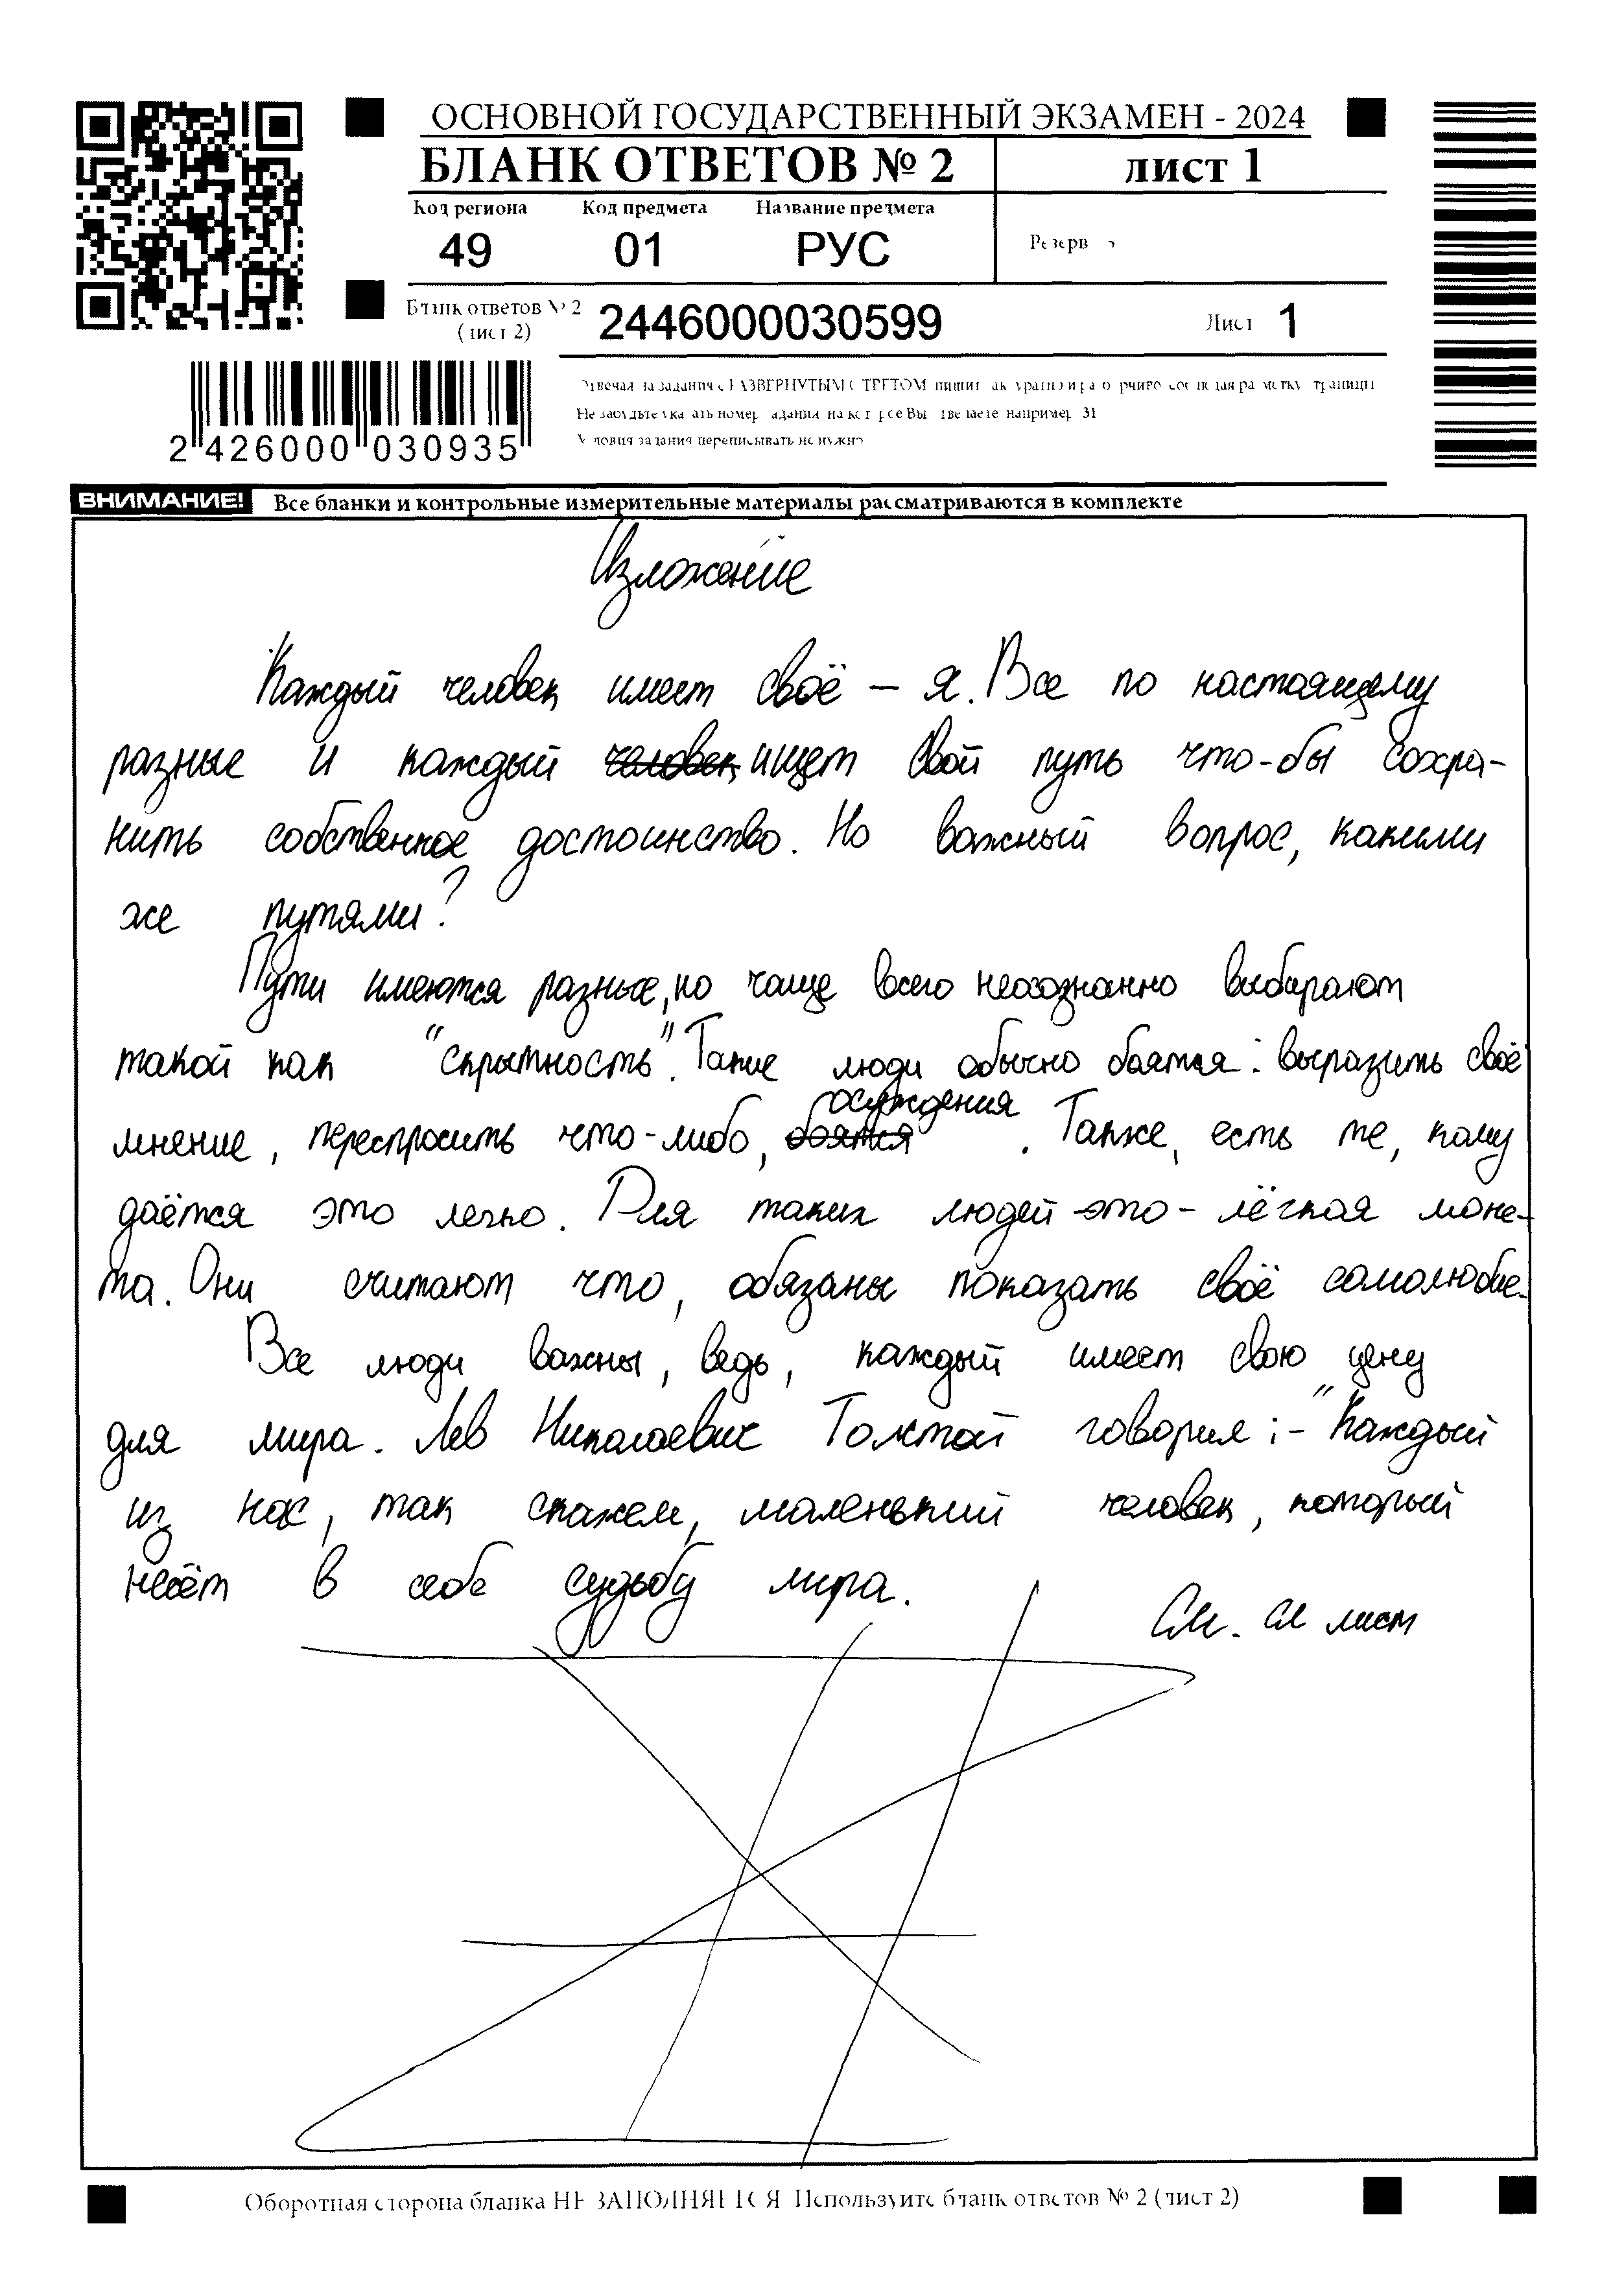 ОСНОВНОЙ ГОСУДАРСТВЕННЫЙ ЭКЗАМЕН - 2024
БЛАНК ОТВЕТОВ № 2
лист 1
Код региона Код предмета Название предмета
49 01 РУС
Резерв
Бланк ответов № 2
(лист 2)
2446000030599
Лист 1
2 426000 030935
Отвечая на задания с РАЗВЕРНУТЫМ ОТВЕТОМ, пишите аккуратно и разборчиво, соблюдая разметку страницы
Не забудьте указать номер задания, на которое Вы отвечаете, например, 31
Условия задания переписывать не нужно
ВНИМАНИЕ! Все бланки и контрольные измерительные материалы рассматриваются в комплекте
Изложение
Каждый человек имеет своё – я. Все по настоящему
разные и каждый человек ищет свой путь что-бы сохра-
нить собственное достоинство. Но важный вопрос, какими
же путями?
Пути имеются разные, но чаще всего неосознанно выбирают
такой как "скрытность". Такие люди обычно боятся: выразить своё
мнение, переспросить что-либо, боятся осуждения. Также, есть те, кому
даётся это легко. Для таких людей это - лёгкая моне-
та. Они считают что, обязаны показать своё самолюбие.
Все люди важны, ведь, каждый имеет свою цену
для мира. Лев Николаевич Толстой говорил: - "Каждый
из нас, так скажем, маленький человек, который
несёт в себе судьбу мира.
См. сл лист
Оборотная сторона бланка НЕ ЗАПОЛНЯЕТСЯ. Используйте бланк ответов № 2 (лист 2)